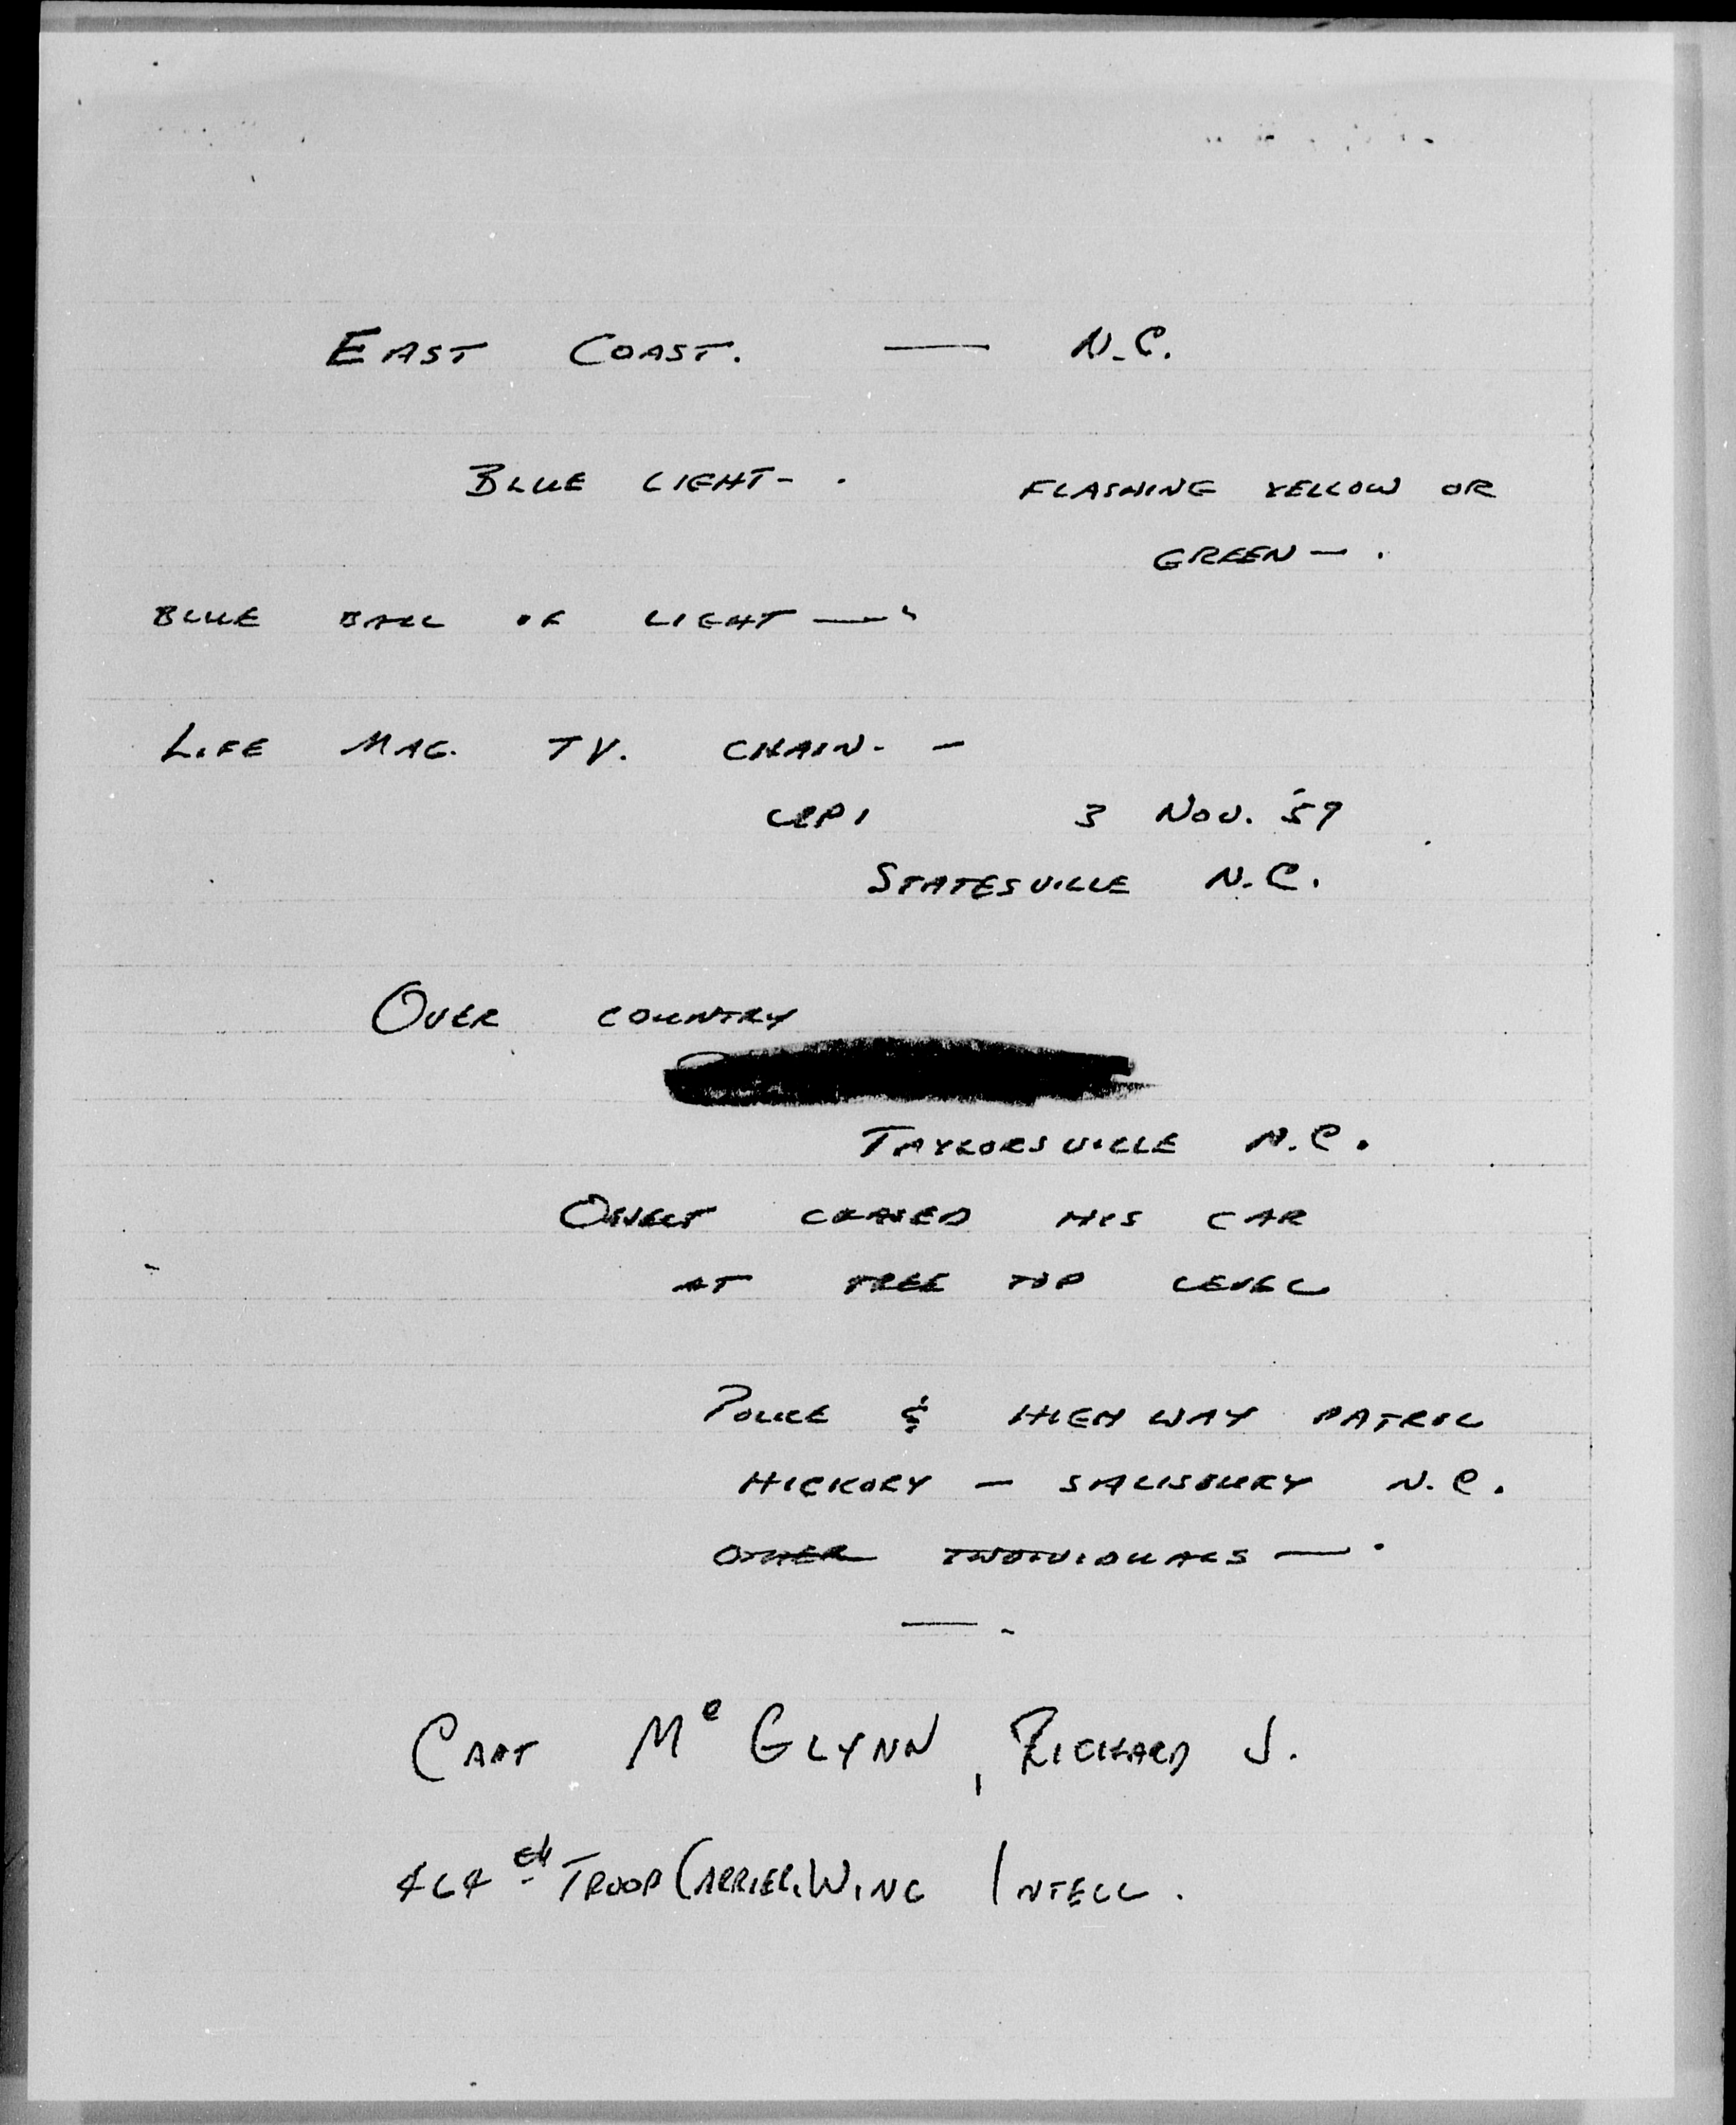 EAST COAST. — N.C.
BLUE LIGHT- . FLASHING YELLOW OR
GREEN — .
BLUE BALL OF LIGHT — .
LIFE MAG. TV. CHAIN. -
UPI 3 NOV. '59
STATESVILLE N.C.
OVER COUNTRY
TAYLORSVILLE N.C.
OBJECT CHASED HIS CAR
AT TREE TOP LEVEL
POLICE & HIGHWAY PATROL
HICKORY - SALISBURY N.C.
OTHER INDIVIDUALS — .
— -
CAPT McGLYNN, RICHARD J.
464th TROOP CARRIER WING INTELL.